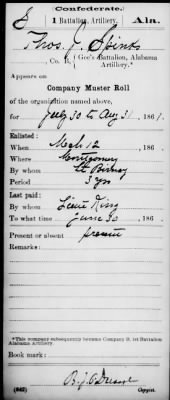 (Confederate.)
S 1 Battalion, Artillery. Ala.
Thos. J. Spinks
, Co. B, Gee's Battalion, Alabama Artillery.*
Appears on
Company Muster Roll
of the organization named above,
for July 30 to Aug 31, 1861.
Enlisted:
When Mch 12, 186 .
Where Montgomery
By whom Lt
Period 3 yrs
Last paid:
By whom Lieut King
To what time June 30, 186 .
Present or absent present
Remarks:
*This company subsequently became Company B, 1st Battalion
Alabama Artillery.
Book mark:
(642) Copyist.